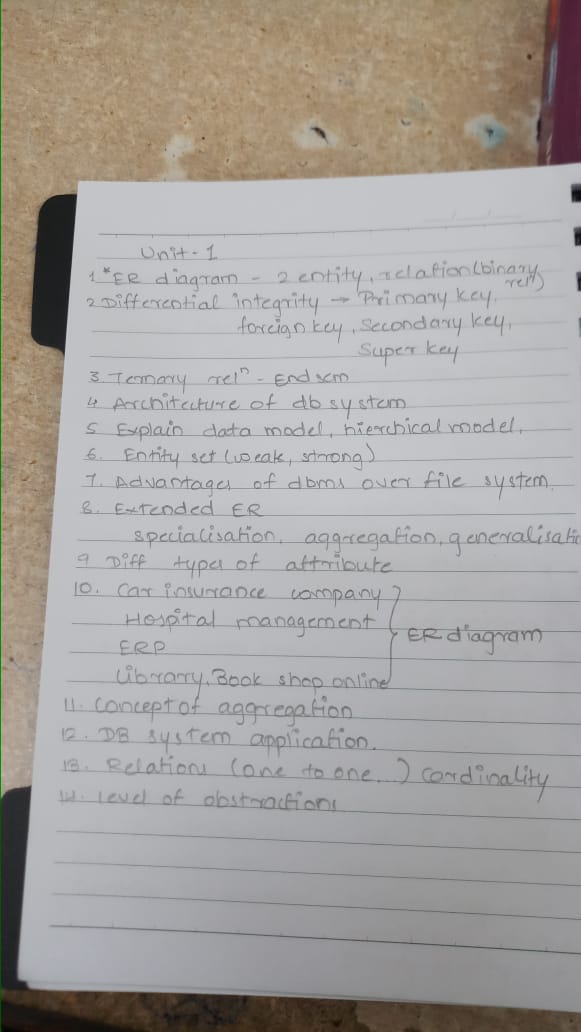 Unit-1
1* ER diagram - 2 entity, relation (binary
reln)
2 Differential integrity → Primary key,
foreign key, Secondary key,
Super key
3. Ternary reln - Endsem
4. Architecture of db system
5 Explain data model, hierchical model,
6. Entity set (weak, strong)
7. Advantages of dbms over file system.
8. Extended ER
specialisation, aggregation, generalisatio
9 Diff types of attribute
10. Car insurance company
Hospital management
ER diagram
ERP
Library, Book shop online
11. Concept of aggregation
12. DB system application.
13. Relations (one to one, ) cardinality
14. level of abstractions